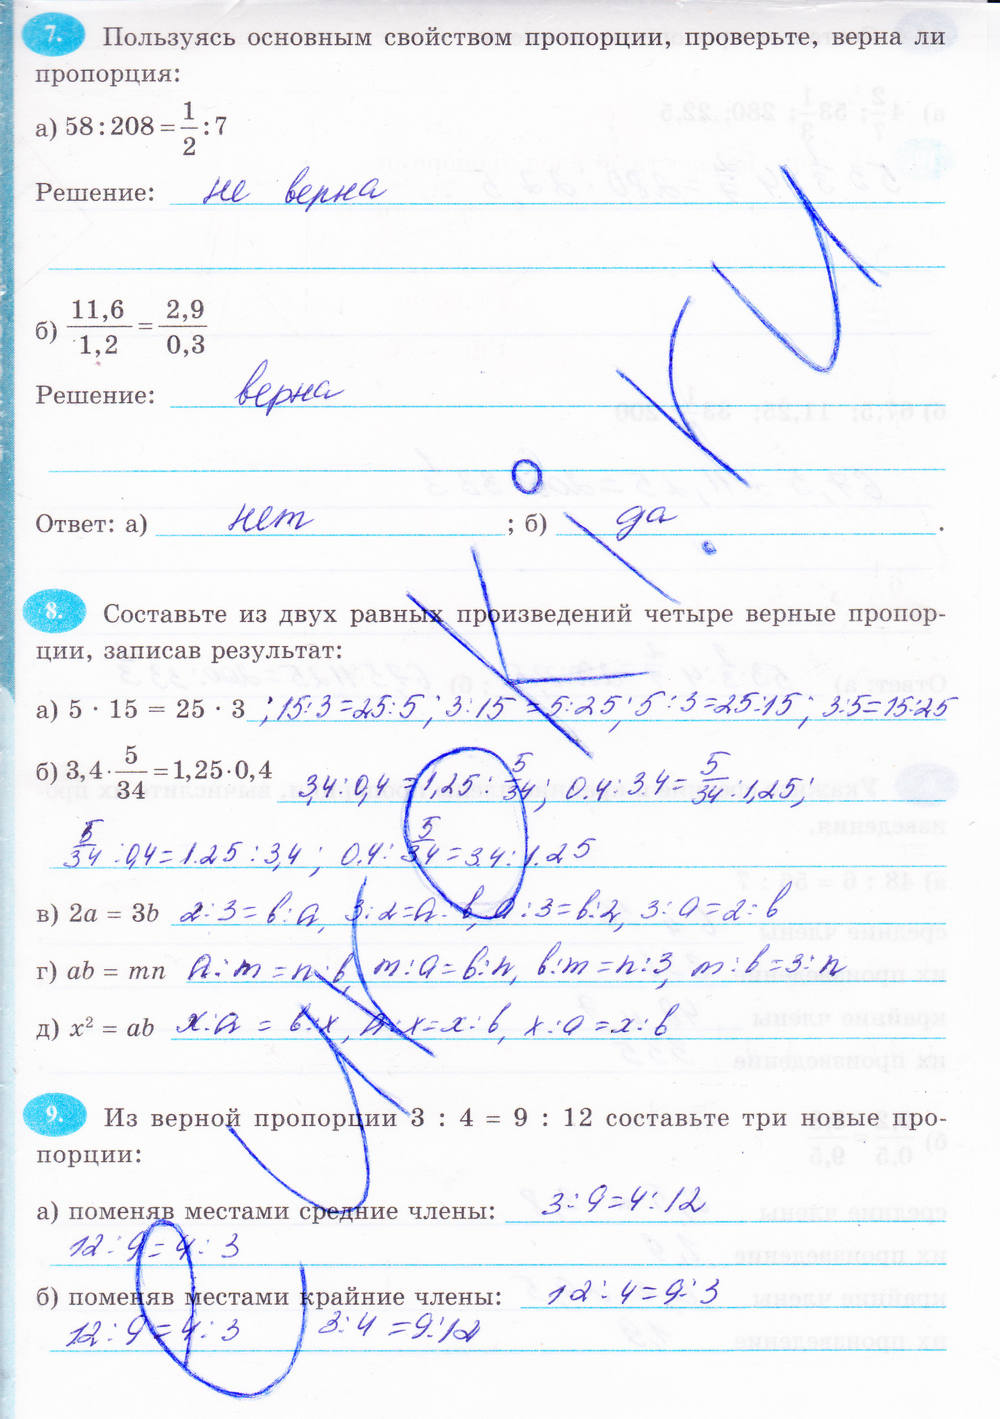 7. Пользуясь основным свойством пропорции, проверьте, верна ли
пропорция:
а) 58 : 208 = 1/2 : 7
Решение: не верна
б) 11,6/1,2 = 2,9/0,3
Решение: верна
Ответ: а) нет ; б) да .
8. Составьте из двух равных произведений четыре верные пропор-
ции, записав результат:
а) 5 · 15 = 25 · 3 ; 15:3=25:5; 3:15=5:25; 5:3=25:15; 3:5=15:25
б) 3,4 · 5/34 = 1,25 · 0,4 3,4:0,4=1,25:5/34; 0.4:3,4=5/34:1,25;
5/34:0,4=1.25:3,4; 0.4:5/34=3.4:1.25
в) 2a = 3b 2:3=b:a, 3:2=a:b, a:3=b:2, 3:a=2:b
г) ab = mn a:m=n:b, m:a=b:n, b:m=n:3, m:b=3:n
д) x² = ab x:a=b:x, a:x=x:b, x:a=x:b
9. Из верной пропорции 3 : 4 = 9 : 12 составьте три новые про-
порции:
а) поменяв местами средние члены: 3:9=4:12
12:9=4:3
б) поменяв местами крайние члены: 12:4=9:3
12:9=4:3 3:4=9:12